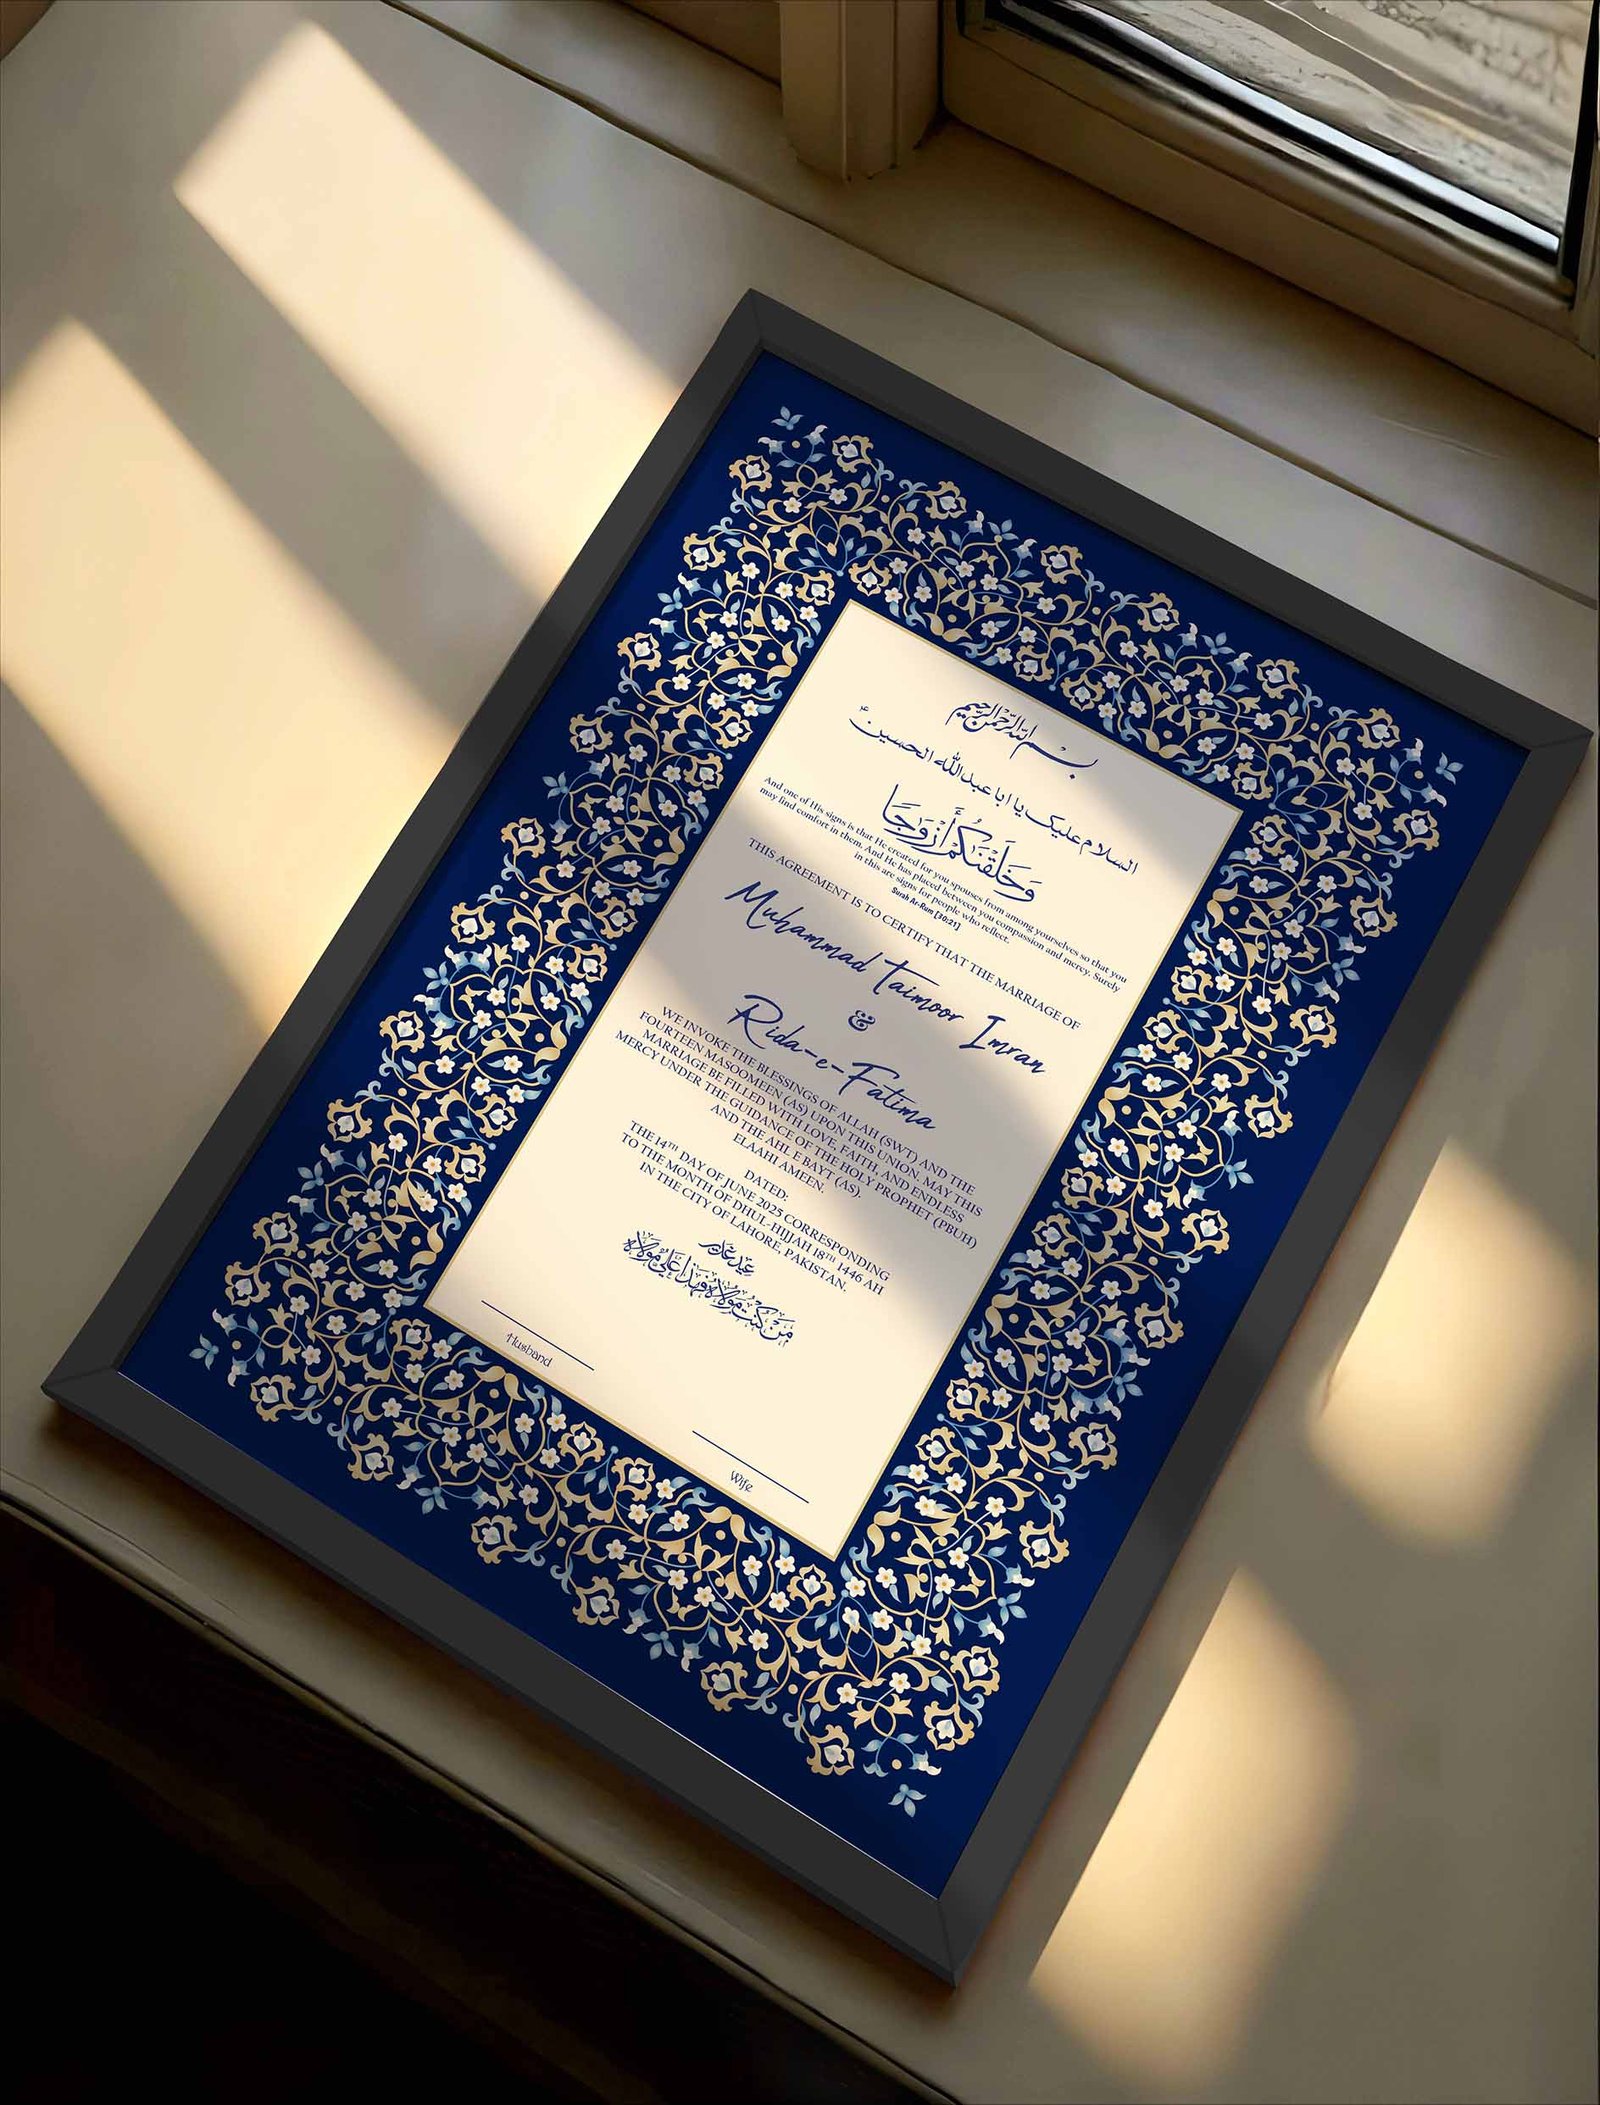 بسم الله الرحمن الرحيم
السلام علیک یا ابا عبدالله الحسینؑ
وَخَلَقْنَاكُمْ أَزْوَاجًا
And one of His signs is that He created for you spouses from among yourselves so that you
may find comfort in them. And He has placed between you compassion and mercy. Surely
in this are signs for people who reflect.
Surah Ar-Rum [30:21]
THIS AGREEMENT IS TO CERTIFY THAT THE MARRIAGE OF
Muhammad Taimoor Imran
&
Rida-e-Fatima
WE INVOKE THE BLESSINGS OF ALLAH (SWT) AND THE
FOURTEEN MASOOMEEN (AS) UPON THIS UNION. MAY THIS
MARRIAGE BE FILLED WITH LOVE, FAITH, AND ENDLESS
MERCY UNDER THE GUIDANCE OF THE HOLY PROPHET (PBUH)
AND THE AHL E BAYT (AS).
ELAAHI AMEEN.
DATED:
THE 14TH DAY OF JUNE 2025 CORRESPONDING
TO THE MONTH OF DHUL-HIJJAH 18TH 1446 AH
IN THE CITY OF LAHORE, PAKISTAN.
من كنت مولاه فهذا علي مولاه
Husband
Wife